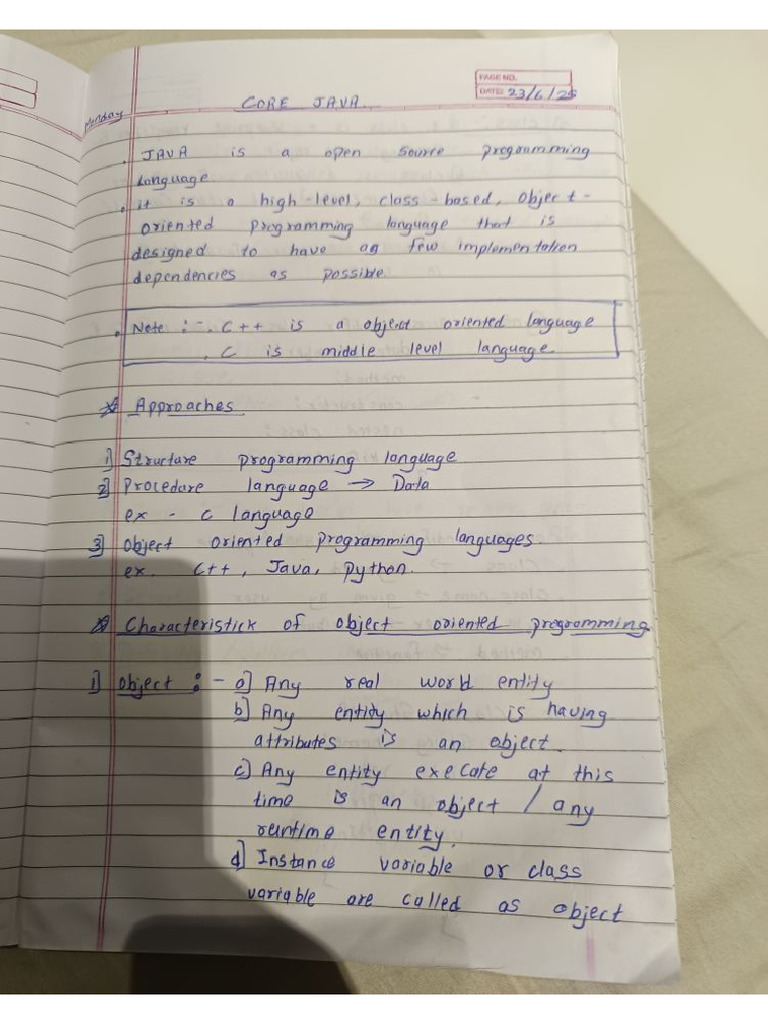 PAGE NO.
DATE: 23/6/25
CORE JAVA
Monday
. JAVA is a open source programming
language.
. it is a high-level, class-based, object-
oriented programming language that is
designed to have as few implementation
dependencies as possible
. Note :-. C++ is a object oriented language
. C is middle level language.
Approaches
1] Structure programming language
2] Procedure language → Data
ex - C language
3] Object oriented programming languages.
ex. C++, Java, python.
Characteristick of object oriented programming
1] object :- a] Any real world entity
b] Any entity which is having
attributes is an object.
c] Any entity execate at this
time is an object / any
runtime entity.
d] Instance variable or class
variable are called as object